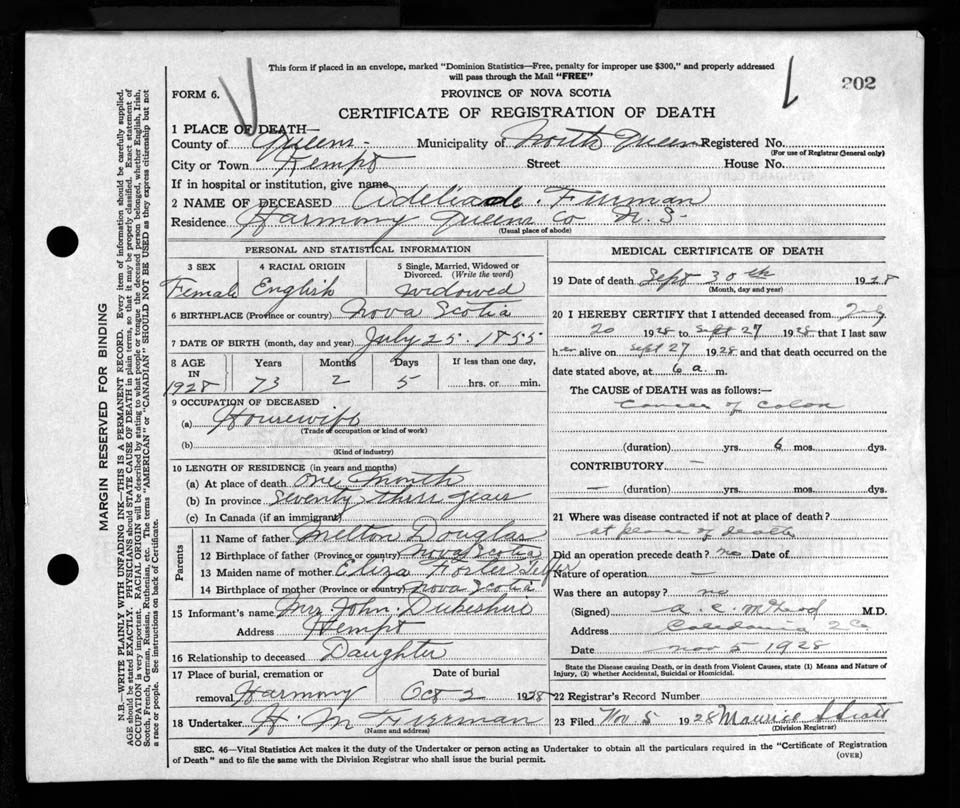 This form if placed in an envelope, marked "Dominion Statistics—Free, penalty for improper use $300," and properly addressed
will pass through the Mail "FREE"
202
FORM 6.
PROVINCE OF NOVA SCOTIA
CERTIFICATE OF REGISTRATION OF DEATH
1 PLACE OF DEATH—
County of Queens - Municipality of North Queens Registered No.
(For use of Registrar General only)
City or Town Kempt Street House No.
If in hospital or institution, give name
2 NAME OF DECEASED Furman
Residence Harmony Queens Co N.S.
(Usual place of abode)
PERSONAL AND STATISTICAL INFORMATION
3 SEX 4 RACIAL ORIGIN 5 Single, Married, Widowed or
Divorced. (Write the word)
Female English Widowed
6 BIRTHPLACE (Province or country) Nova Scotia
7 DATE OF BIRTH (month, day and year) July 25. 1855
8 AGE Years Months Days If less than one day,
IN
1928 73 2 5 hrs. or min.
9 OCCUPATION OF DECEASED
(a) Housewife
(Trade of occupation or kind of work)
(b)
(Kind of industry)
10 LENGTH OF RESIDENCE (in years and months)
(a) At place of death one month
(b) In province seventy three years
(c) In Canada (if an immigrant)
Parents
11 Name of father Melton Douglas
12 Birthplace of father (Province or country) Nova Scotia
13 Maiden name of mother Eliza Foster
14 Birthplace of mother (Province or country) Nova Scotia
15 Informant's name Mrs John Dukeshire
Address Kempt
16 Relationship to deceased Daughter
17 Place of burial, cremation or Date of burial
removal Harmony Oct 2 1928
18 Undertaker H M Freeman
(Name and address)
MEDICAL CERTIFICATE OF DEATH
19 Date of death Sept 30th 1928
(Month, day and year)
20 I HEREBY CERTIFY that I attended deceased from July
20 1928 to Sept 27 1928 that I last saw
her alive on Sept 27 1928 and that death occurred on the
date stated above, at 6 a. m.
The CAUSE of DEATH was as follows:—
Cancer of Colon
(duration) yrs. 6 mos. dys.
CONTRIBUTORY —
— (duration) yrs. mos. dys.
21 Where was disease contracted if not at place of death?
at place of death
Did an operation precede death? no Date of
Nature of operation —
Was there an autopsy? no
(Signed) A. C. McLeod M.D.
Address Caledonia Q Co
Date Nov 5 1928
State the Disease causing Death, or in death from Violent Causes, state (1) Means and Nature of
Injury, (2) whether Accidental, Suicidal or Homicidal.
22 Registrar's Record Number
23 Filed Nov 5 1928 Maurice
(Division Registrar)
SEC. 46—Vital Statistics Act makes it the duty of the Undertaker or person acting as Undertaker to obtain all the particulars required in the "Certificate of Registration
of Death" and to file the same with the Division Registrar who shall issue the burial permit.
(OVER)
MARGIN RESERVED FOR BINDING
N.B.—WRITE PLAINLY WITH UNFADING INK—THIS IS A PERMANENT RECORD. Every item of information should be carefully supplied.
AGE should be stated EXACTLY. PHYSICIANS should STATE CAUSE OF DEATH in plain terms, so that it may be properly classified. Exact statement of
OCCUPATION is very important. RACIAL ORIGIN will be described by stating to what people or tongue the deceased person belonged, whether English, Irish,
Scotch, French, German, Russian, Ruthenian, etc. The terms "AMERICAN" or "CANADIAN" SHOULD NOT BE USED as they express citizenship but not
a race or people. See instructions on back of Certificate.